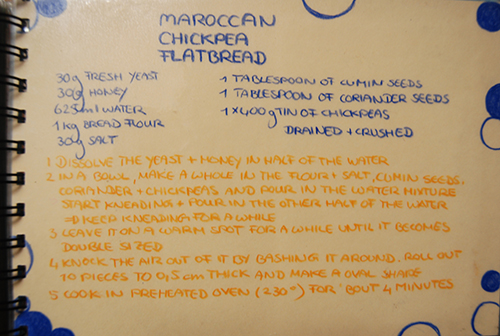 MAROCCAN
CHICKPEA
FLATBREAD
30g FRESH YEAST
30g HONEY
625ml WATER
1kg BREAD FLOUR
30g SALT
1 TABLESPOON OF CUMIN SEEDS
1 TABLESPOON OF CORIANDER SEEDS
1x400g TIN OF CHICKPEAS
DRAINED + CRUSHED
1 DISSOLVE THE YEAST + HONEY IN HALF OF THE WATER
2 IN A BOWL, MAKE A WHOLE IN THE FLOUR + SALT, CUMIN SEEDS.
CORIANDER + CHICKPEAS AND POUR IN THE WATER MIXTURE
START KNEADING + POUR IN THE OTHER HALF OF THE WATER
⇒ KEEP KNEADING FOR A WHILE
3 LEAVE IT ON A WARM SPOT FOR A WHILE UNTIL IT BECOMES
DOUBLE SIZED
4 KNOCK THE AIR OUT OF IT BY BASHING IT AROUND. ROLL OUT
10 PIECES TO 0,5 cm THICK AND MAKE A OVAL SHAPE
5 COOK IN PREHEATED OVEN (230°) FOR 'BOUT 4 MINUTES